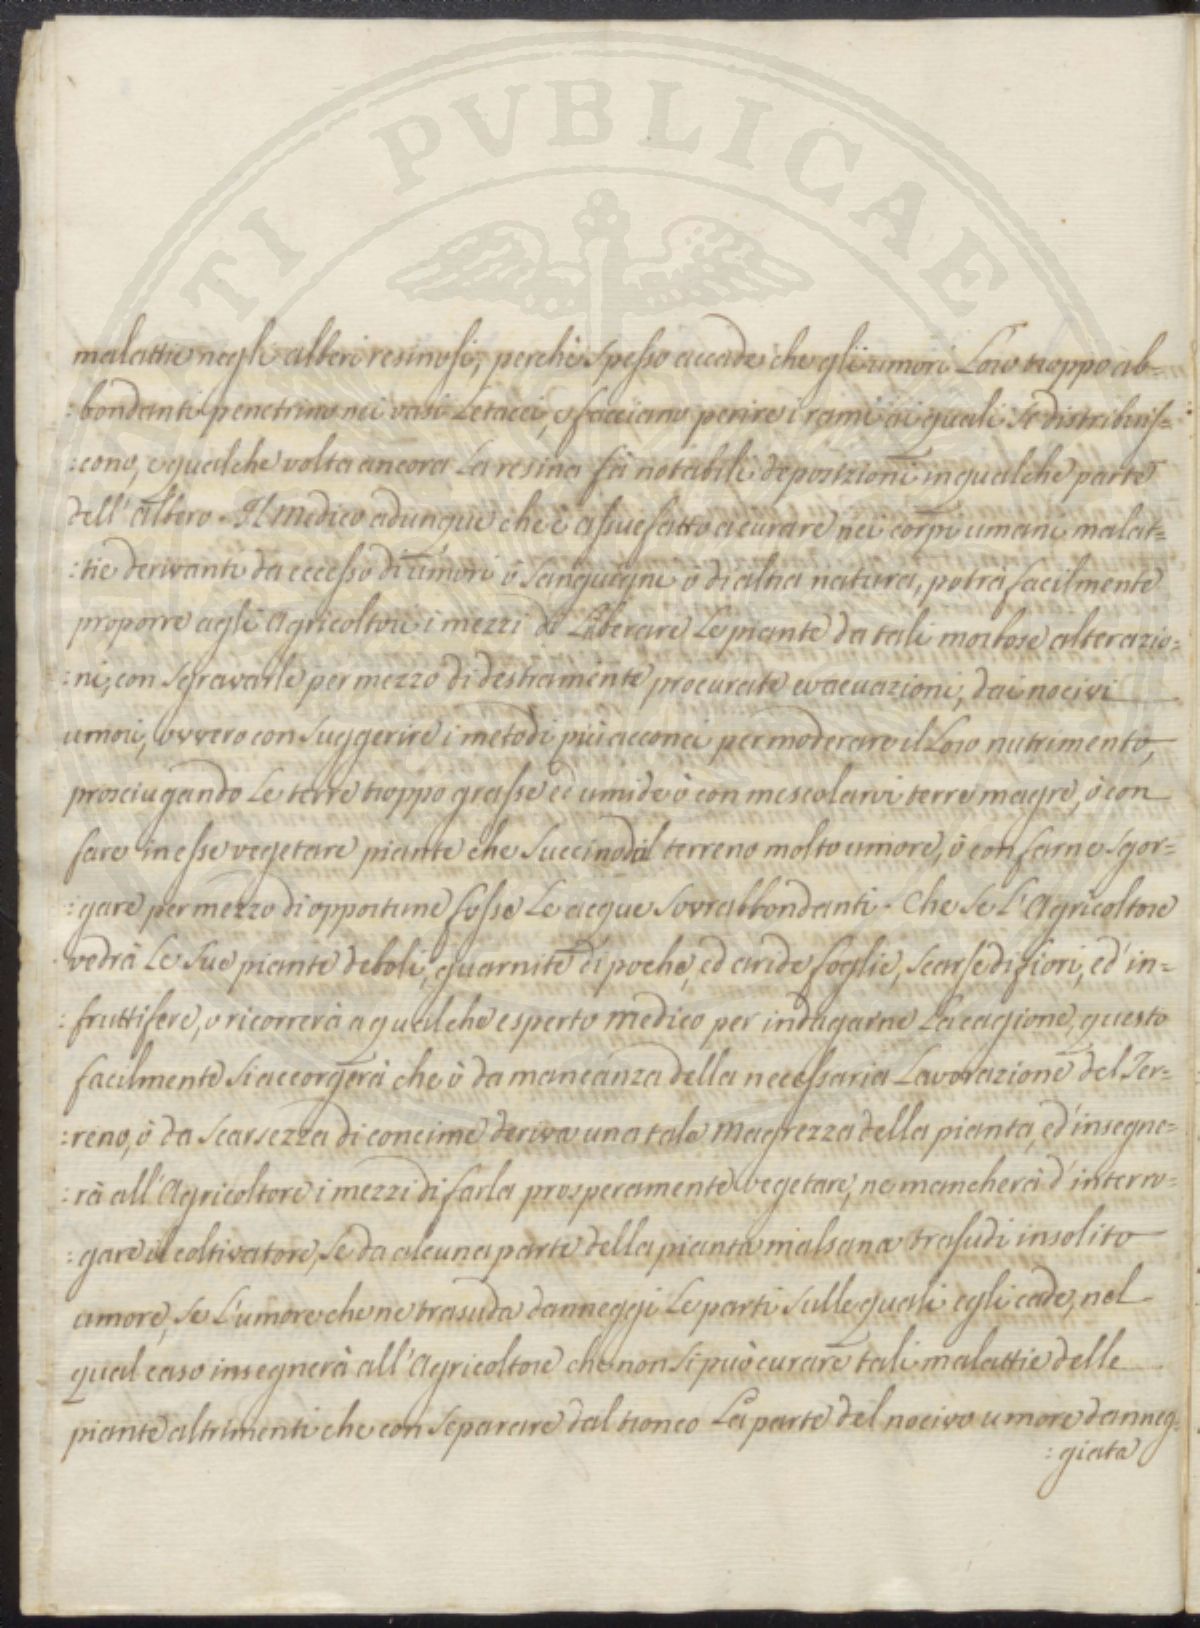 TI PVBLICAE
malattie negli alberi resinosi, perchè spesso accade che gli umori Loro troppo ab=
:bondanti penetrino nei vasi Lettacei, e facciano perire i rami ai quali se distribuis=
:cono, e qualche volta ancora La resina fà notabili deposizioni in qualche parte
dell'albero. Il Medico adunque che è assuefatto a curare nei corpi umani malat=
:tie derivanti da eccesso di umori ò sanguigni ò di altra natura, potrà facilmente
proporre agli Agricoltori i mezzi di Liberare Le piante da tali morbose alterazio=
:ni, con sgravarle per mezzo di destramente procurate evacuazioni, dai nocivi
umori, ovvero con suggerire i metodi più acconci per moderare il Loro nutrimento,
prosciugando Le terre troppo grasse ed umide ò con mescolarvi terre magre, ò con
fare in esse vegetare piante che succino dal terreno molto umore, ò con farne sgor=
:gare per mezzo di opportune fosse Le acque sovrabbondanti. Che se L'Agricoltore
vedrà Le sue piante deboli, guarnite di poche, ed aride foglie, scarse di fiori, ed in=
:fruttifere, o ricorrerà a qualche esperto Medico per indagarne La cagione, questo
facilmente si accorgerà che ò da mancanza della necessaria Lavorazione del Ter=
:reno, ò da scarsezza di concime deriva una tale Magrezza della pianta, ed insegne=
:rà all'Agricoltore i mezzi di farla prosperamente vegetare, ne mancherà d'interro=
:gare il coltivatore, se da alcuna parte della pianta malsana trasudi insolito
umore, se L'umore che ne trasuda danneggi Le parti sulle quali egli cade, nel
qual caso insegnerà all'Agricoltore che non si può curare tali malattie delle
piante altrimenti che con separare dal tronco La parte del nocivo umore danneg=
:giata